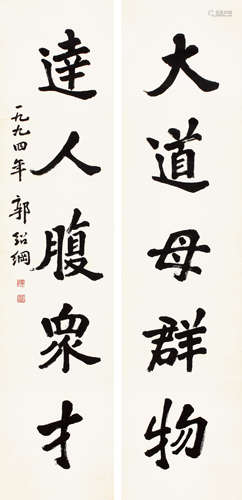 大道母群物
達人腹眾才
一九九四年 郭紹綱